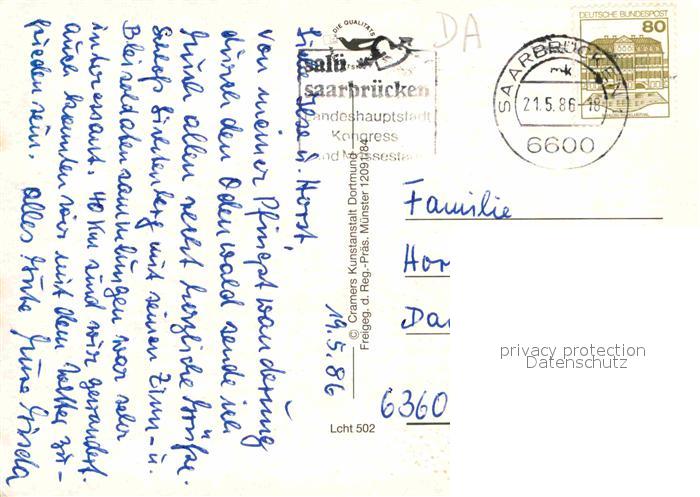 Liebe Ilse u. Horst,
von meiner Pfingstwanderung
durch den Odenwald sende ich
Euch allen recht herzliche Grüße.
Schloß Lichtenberg mit seinen Zinn- u.
Bleisoldatensammlungen war sehr
interessant. 40 Km sind wir gewandert.
auch konnten wir mit dem Wetter zu-
frieden sein. Alles Gute Eure Gisela
19.5.86
DIE QUALITÄTS
salü
saarbrücken
Landeshauptstadt
Kongress
und Messestadt
© Cramers Kunstanstalt Dortmund
Freigeg. d. Reg.-Präs. Münster 12091/84
Lcht 502
DA
DEUTSCHE BUNDESPOST
80
SAARBRÜCKEN 1
mk
21.5.86-18
6600
Familie
Hor
Dar
6360
privacy protection
Datenschutz